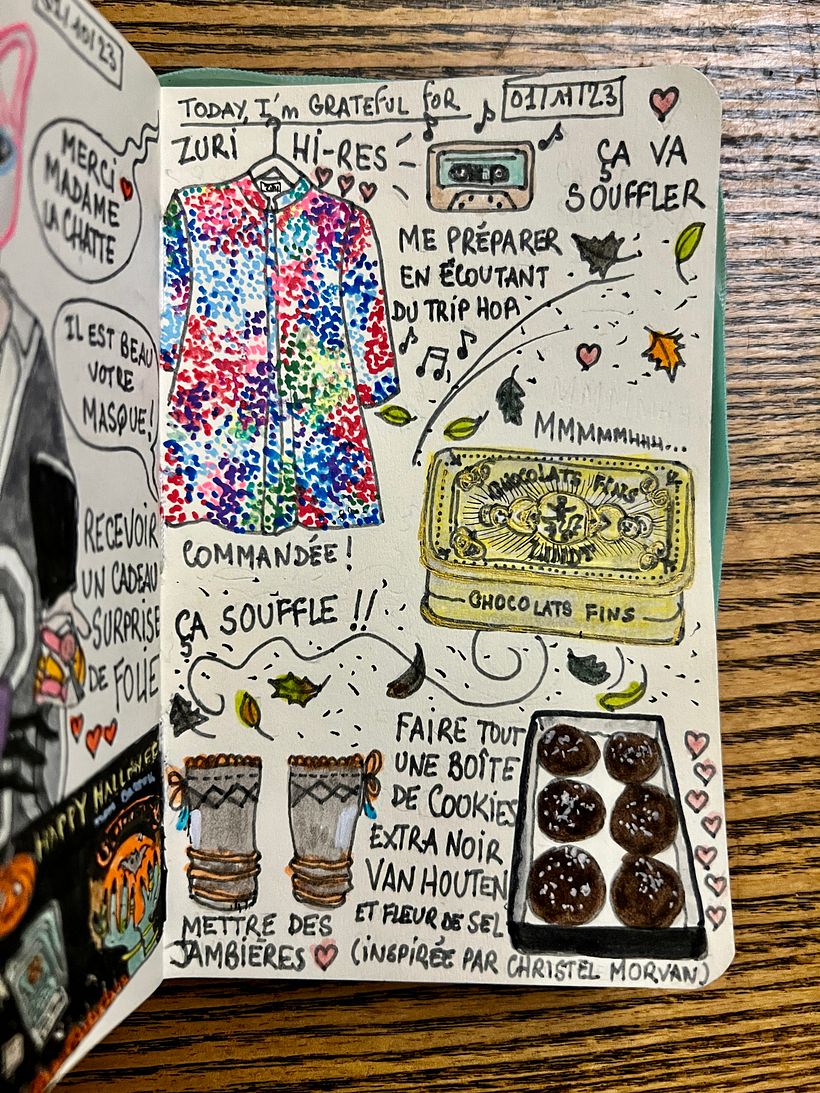 31/10/23
MERCI
MADAME
LA CHATTE
IL EST BEAU
VOTRE
MASQUE!
RECEVOIR
UN CADEAU
SURPRISE
DE FOLIE
HAPPY HALLOWEEN
TODAY, I'm GRATEFUL FOR
01/11/23
ZURI
HI-RES
ÇA VA
SOUFFLER
ME PRÉPARER
EN ÉCOUTANT
DU TRIP HOP
MMMMMHHH...
CHOCOLATS FINS
LINDT
CHOCOLATS FINS
COMMANDÉE!
ÇA SOUFFLE!!
FAIRE TOUT
UNE BOÎTE
DE COOKIES
EXTRA NOIR
VAN HOUTEN
ET FLEUR DE SEL
(INSPIRÉE PAR CHRISTEL MORVAN)
METTRE DES
JAMBIÈRES